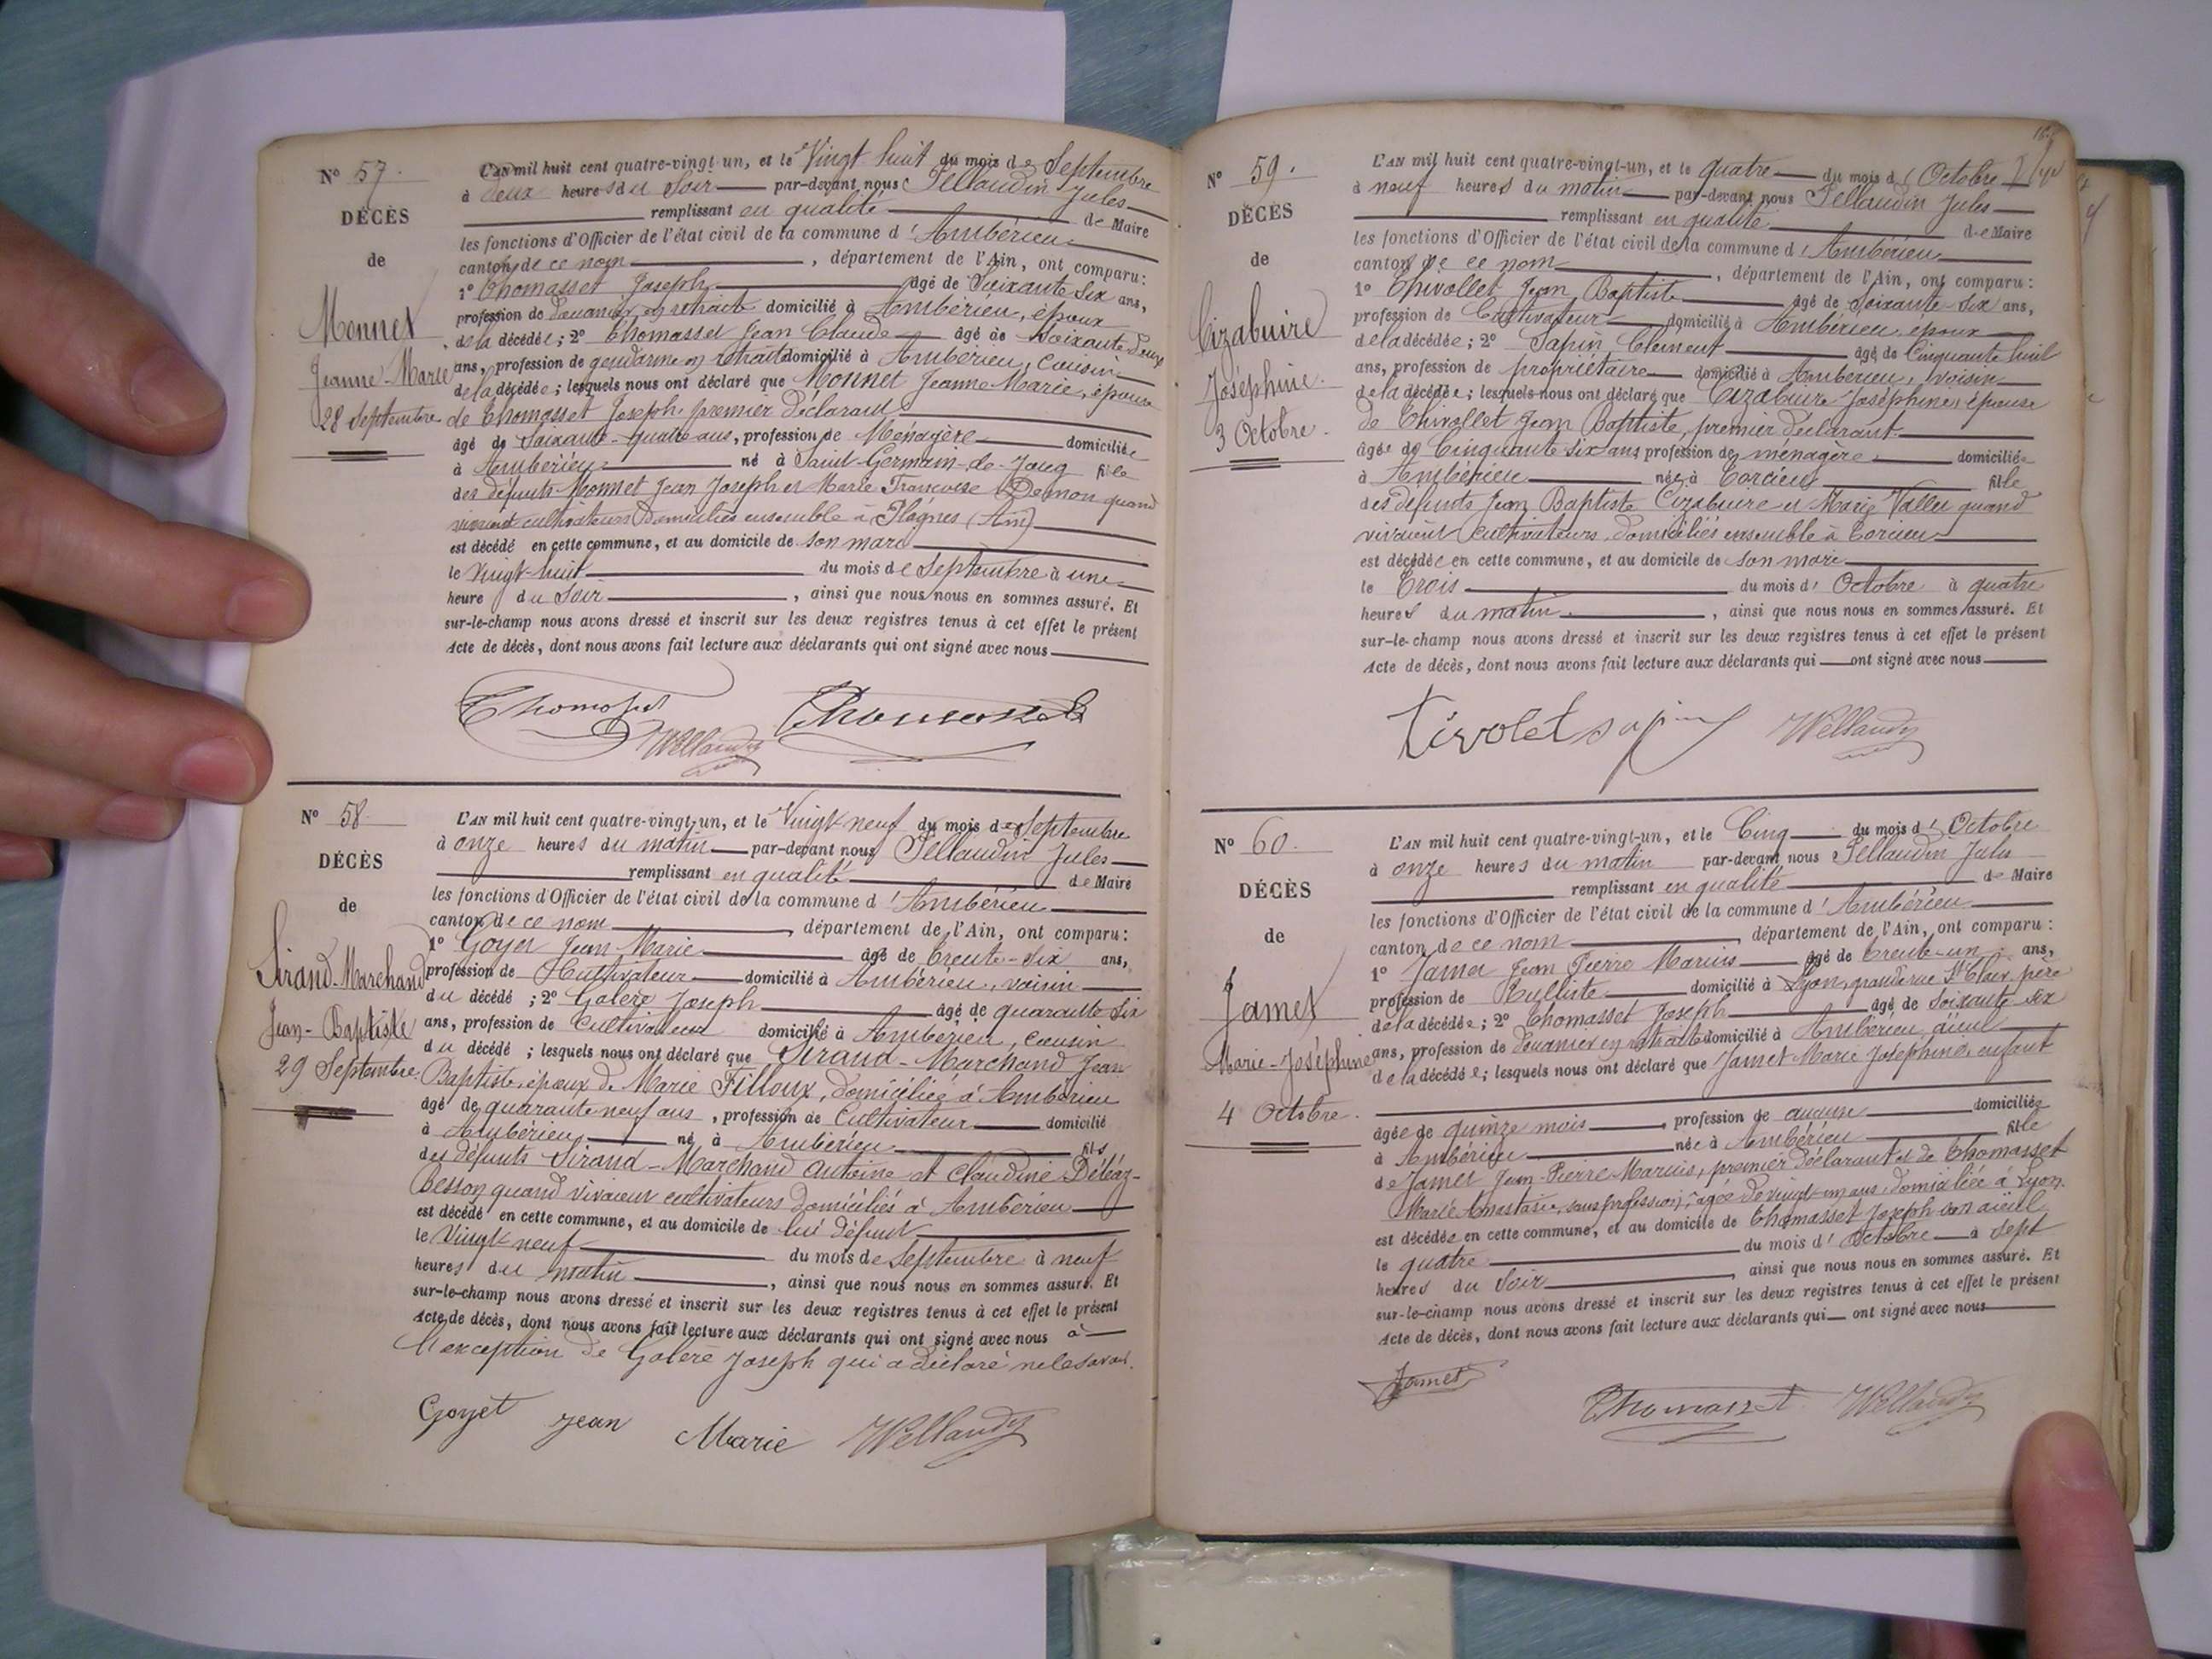 N° 57.
DÉCÈS
de
Monnet
Jeanne-Marie
28 Septembre
L'AN mil huit cent quatre-vingt-un, et le Vingt huit du mois de Septembre
à deux heures du Soir par-devant nous Pellaudin Jules
remplissant en qualité de Maire
les fonctions d'Officier de l'état civil de la commune d'Ambérieu
canton de ce nom, département de l'Ain, ont comparu:
1° Thomasset Joseph âgé de Soixante Six ans,
profession de douanier en retraite domicilié à Ambérieu, époux
de la décédée; 2° Thomasset Jean Claude âgé de Soixante deux
ans, profession de gendarme en retraite domicilié à Ambérieu, cousin
de la décédée; lesquels nous ont déclaré que Monnet Jeanne Marie, épouse
de Thomasset Joseph, premier déclarant
âgé de Soixante-quatre ans, profession de Ménagère domiciliée
à Ambérieu né à Saint-Germain-de-Joug fille
des défunts Monnet Jean Joseph et Marie Françoise Demon quand
vivaient cultivateurs domiciliés ensemble à Plagnes (Ain)
est décédé en cette commune, et au domicile de son mari
le vingt-huit du mois de Septembre à une
heure du Soir, ainsi que nous nous en sommes assuré. Et
sur-le-champ nous avons dressé et inscrit sur les deux registres tenus à cet effet le présent
Acte de décès, dont nous avons fait lecture aux déclarants qui ont signé avec nous
Thomasset Thomasset
N° 58.
DÉCÈS
de
Sirand-Marchand
Jean-Baptiste
29 Septembre.
L'AN mil huit cent quatre-vingt-un, et le Vingt neuf du mois de Septembre
à onze heures du matin par-devant nous Pellaudin Jules
remplissant en qualité de Maire
les fonctions d'Officier de l'état civil de la commune d'Ambérieu
canton de ce nom, département de l'Ain, ont comparu:
1° Goyet Jean Marie âgé de trente-six ans,
profession de Cultivateur domicilié à Ambérieu, voisin
du décédé; 2° Galère Joseph âgé de quarante six
ans, profession de Cultivateur domicilié à Ambérieu, cousin
du décédé; lesquels nous ont déclaré que Sirand-Marchand Jean
Baptiste, époux de Marie Filloux, domiciliée à Ambérieu
âgé de quarante neuf ans, profession de Cultivateur domicilié
à Ambérieu né à Ambérieu fils
des défunts Sirand-Marchand Antoine et Claudine Débéaz-
Besson quand vivaient cultivateurs domiciliés à Ambérieu
est décédé en cette commune, et au domicile de lui défunt
le Vingt neuf du mois de Septembre à neuf
heures du matin, ainsi que nous nous en sommes assuré. Et
sur-le-champ nous avons dressé et inscrit sur les deux registres tenus à cet effet le présent
Acte de décès, dont nous avons fait lecture aux déclarants qui ont signé avec nous à
l'exception de Galère Joseph qui a déclaré ne le savoir.
Goyet Jean Marie
N° 59.
DÉCÈS
de
Cizabuire
Joséphine.
3 Octobre.
L'AN mil huit cent quatre-vingt-un, et le quatre du mois d'Octobre
à neuf heures du matin par-devant nous Pellaudin Jules
remplissant en qualité de Maire
les fonctions d'Officier de l'état civil de la commune d'Ambérieu
canton de ce nom, département de l'Ain, ont comparu:
1° Thivollet Jean Baptiste âgé de Soixante-Six ans,
profession de Cultivateur domicilié à Ambérieu, époux
de la décédée; 2° Sapin Clément âgé de Cinquante huit
ans, profession de propriétaire domicilié à Ambérieu, voisin
de la décédée; lesquels nous ont déclaré que Cizabuire Joséphine, épouse
de Thivollet Jean Baptiste, premier déclarant.
âgée de Cinquante Six ans profession de ménagère domiciliée
à Ambérieu née à Torcieu fille
des défunts Jean Baptiste Cizabuire et Marie Vallet quand
vivaient cultivateurs, domiciliés ensemble à Torcieu
est décédée en cette commune, et au domicile de son mari
le Trois du mois d'Octobre à quatre
heures du matin, ainsi que nous nous en sommes assuré. Et
sur-le-champ nous avons dressé et inscrit sur les deux registres tenus à cet effet le présent
Acte de décès, dont nous avons fait lecture aux déclarants qui ont signé avec nous
Tivolet sapin
N° 60.
DÉCÈS
de
Jamet
Marie-Joséphine
4 Octobre.
L'AN mil huit cent quatre-vingt-un, et le Cinq du mois d'Octobre
à onze heures du matin par-devant nous Pellaudin Jules
remplissant en qualité de Maire
les fonctions d'Officier de l'état civil de la commune d'Ambérieu
canton de ce nom, département de l'Ain, ont comparu:
1° Jamet Jean Pierre Marius âgé de trente-un ans,
profession de Tulliste domicilié à Lyon, grande rue St Clair, père
de la décédée; 2° Thomasset Joseph âgé de soixante six
ans, profession de douanier en retraite domicilié à Ambérieu, aïeul
de la décédée; lesquels nous ont déclaré que Jamet Marie Joséphine, enfant
âgée de quinze mois, profession de aucune domiciliée
à Ambérieu née à Ambérieu fille
de Jamet Jean-Pierre Marius, premier déclarant et de Thomasset
Marie Anastasie, sans profession, âgée de vingt-un ans, domiciliée à Lyon.
est décédée en cette commune, et au domicile de Thomasset Joseph son aïeul
le quatre du mois d'Octobre à sept
heures du Soir, ainsi que nous nous en sommes assuré. Et
sur-le-champ nous avons dressé et inscrit sur les deux registres tenus à cet effet le présent
Acte de décès, dont nous avons fait lecture aux déclarants qui ont signé avec nous
Jamet
Thomasset